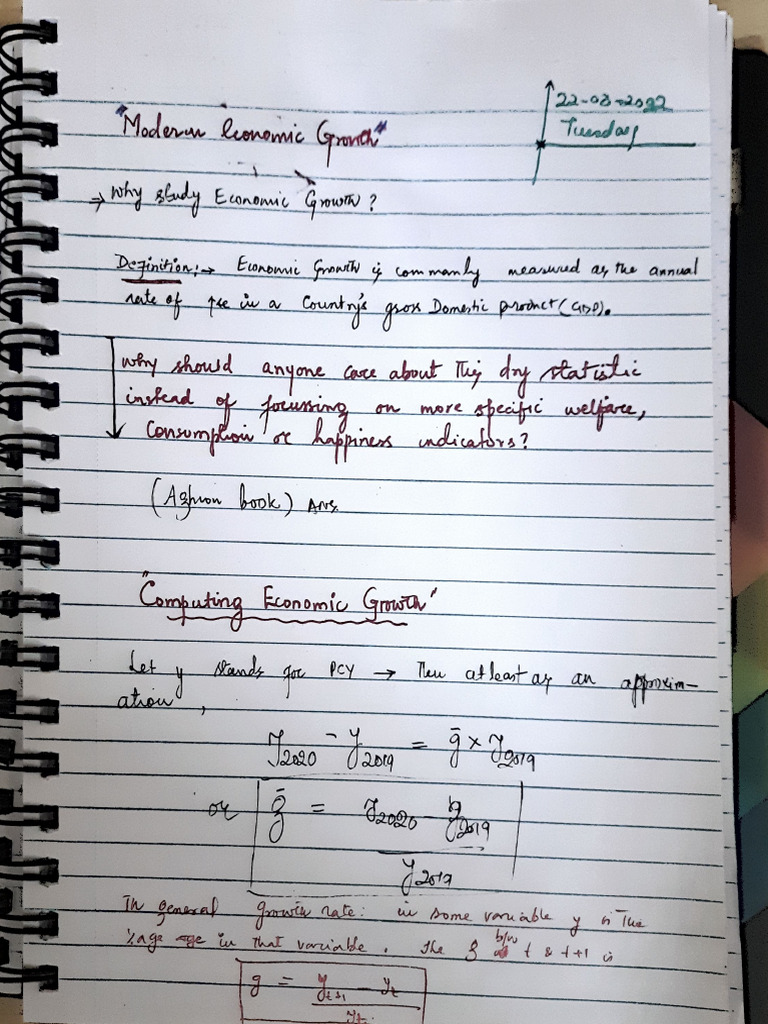 22-08-2022
Tuesday
"Modern Economic Growth"
→ Why study Economic Growth?
Definition:→ Economic Growth is commanly measured as the annual
rate of ↑se in a Country's gross Domestic product (GDP).
Why should anyone care about this dry statistic
instead of focussing on more specific welfare,
Consumption or happiness indicators?
(Aghion book) Ans.
"Computing Economic Growth"
Let y stands for PCY → Then atleast as an approxim-
ation,
y₂₀₂₀ - y₂₀₁₉ = ḡ × y₂₀₁₉
or ḡ = y₂₀₂₀ - y₂₀₁₉
y₂₀₁₉
In general growth rate: in some variable y is the
%age in that variable. The g b/w t & t+1 is
g = yₜ₊₁ - yₜ
yₜ